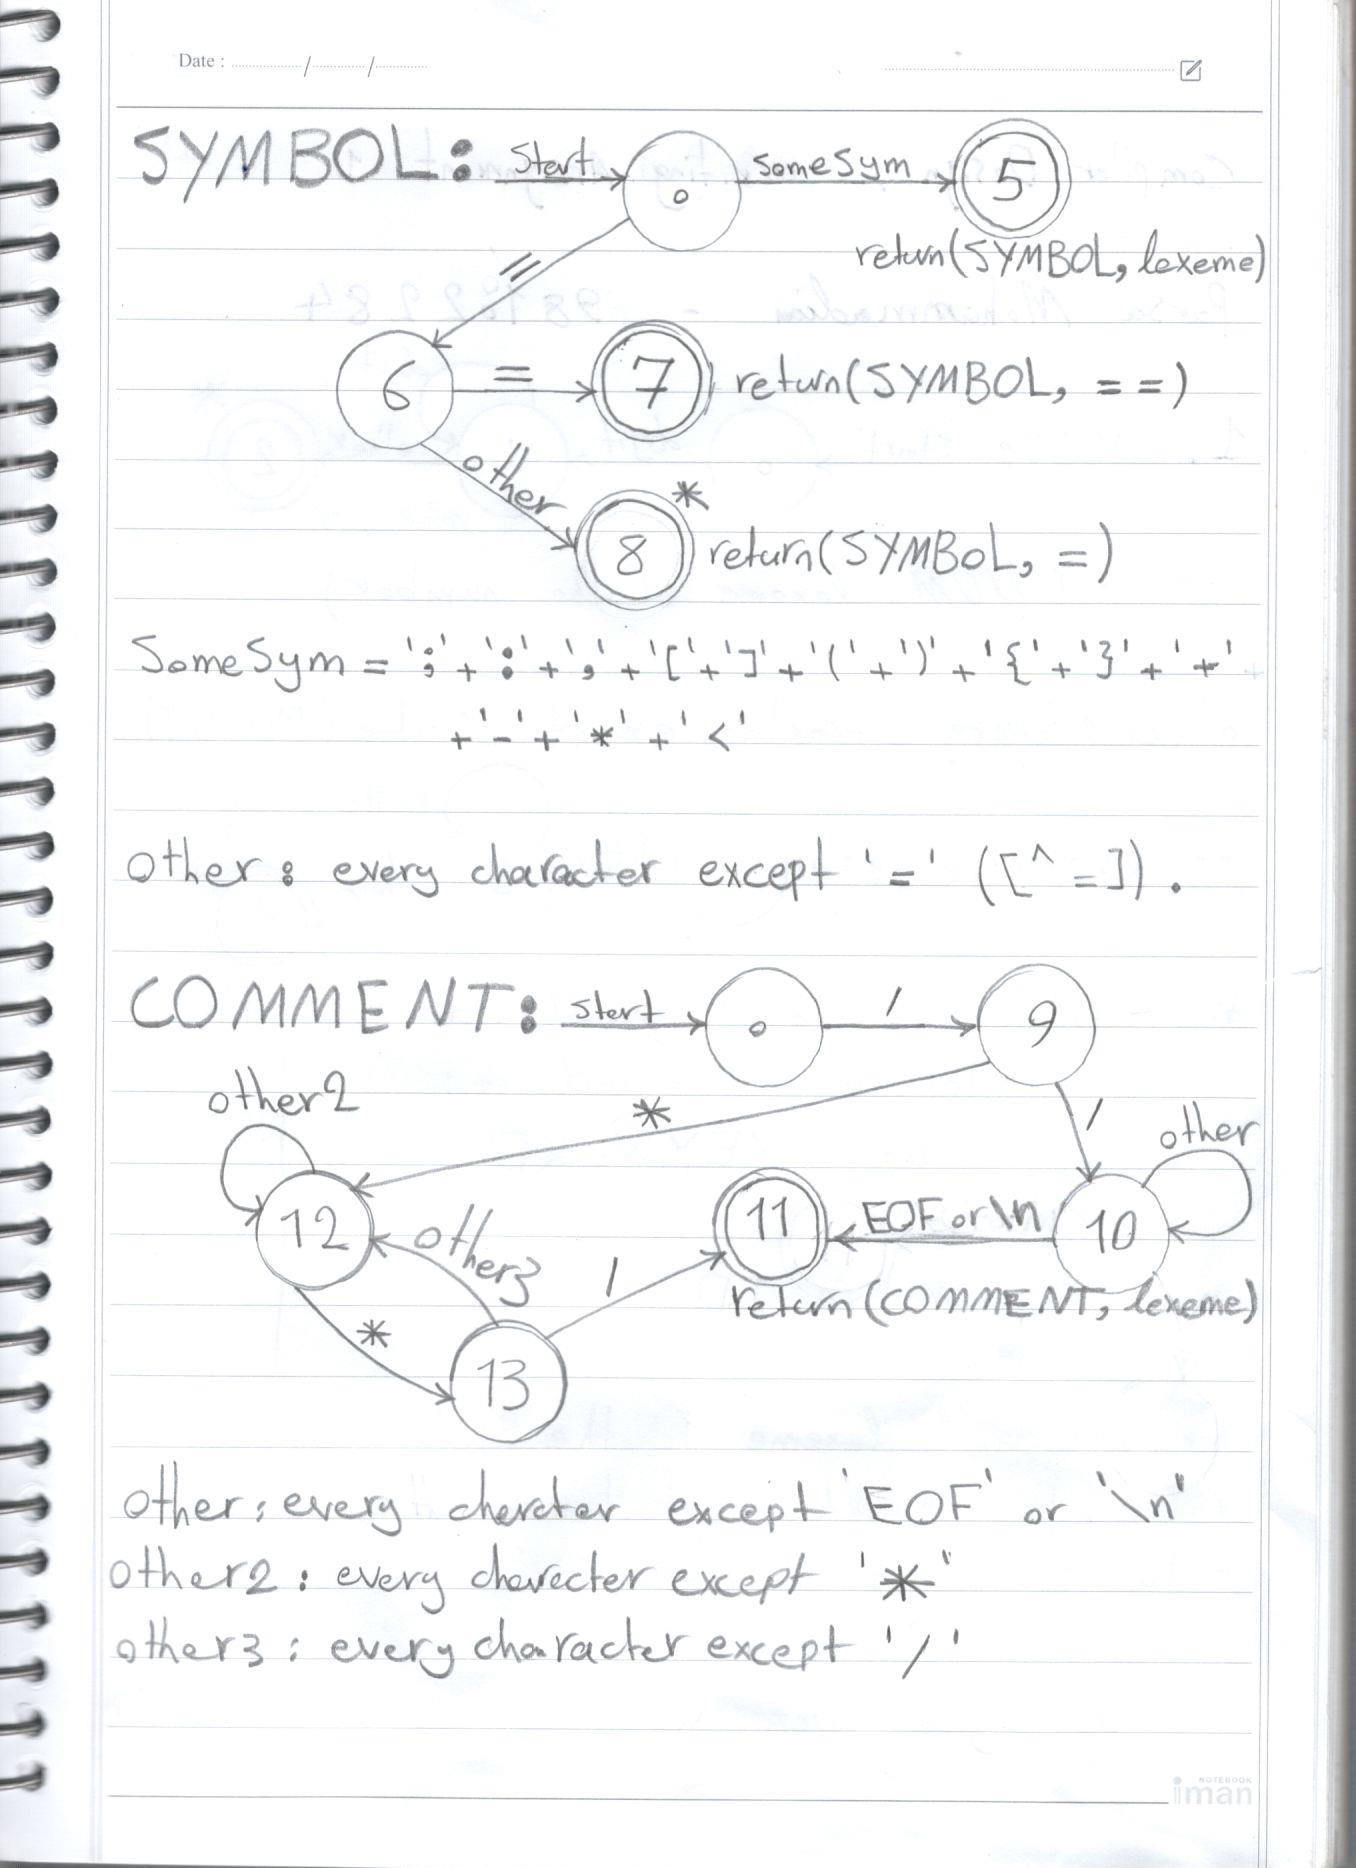 Date : ............/............/............
SYMBOL: Start 0 someSym 5
return(SYMBOL, lexeme)
=
6 = 7 return(SYMBOL, ==)
other *
8 return(SYMBOL, =)
SomeSym = ';' + ':' + ',' + '[' + ']' + '(' + ')' + '{' + '}' + '+'
+ '-' + '*' + '<'
other: every character except '=' ([^=]).
COMMENT: start 0 / 9
other2 * / other
12 other3 / 11 EOF or \n 10
return(COMMENT, lexeme)
* 13
other: every cherecter except 'EOF' or '\n'
other2: every cherecter except '*'
other3: every character except '/'
NOTEBOOK
iman